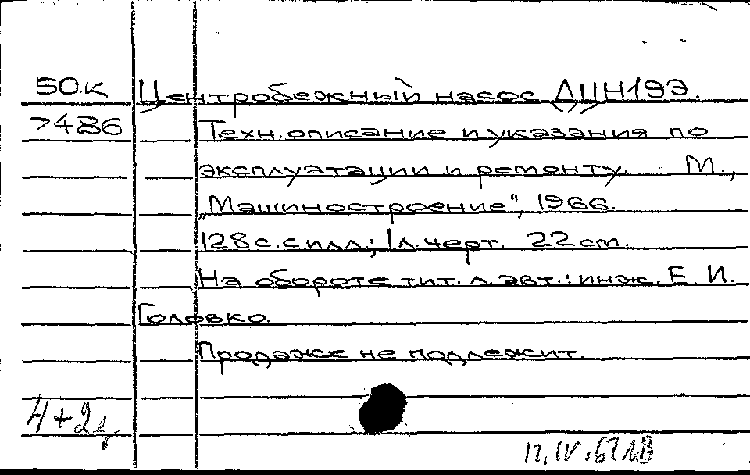 50к Центробежный насос ДЦН19Э.
7486 Техн. описание и указания по
эксплуатации и ремонту. М.,
„Машиностроение", 1966.
128 с. с илл.; 1 л. черт. 22 см.
На обороте тит. л. авт.: инж. Е. И.
Головко.
Продаже не подлежит.
4+2